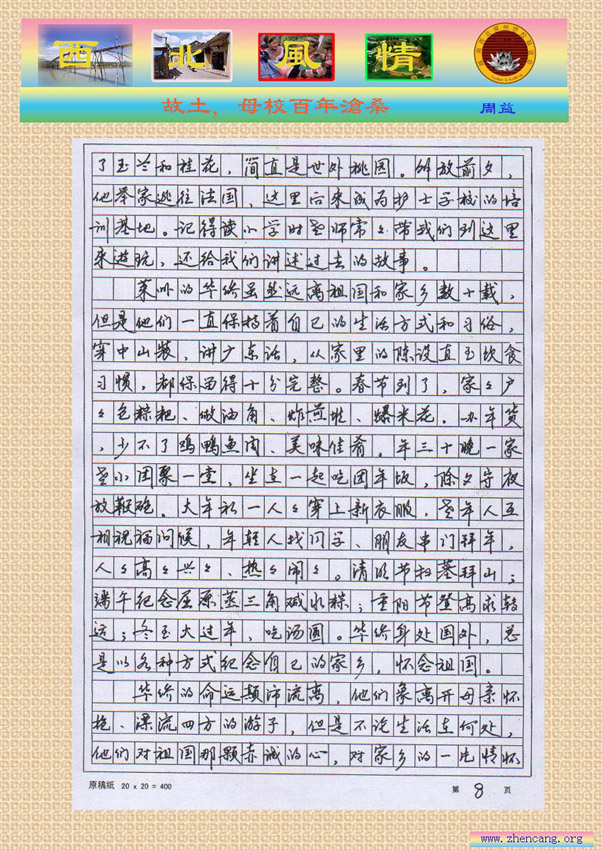 西北風情
故土，母校百年滄桑
周益
了玉兰和桂花，简直是世外桃园。解放前夕，
他举家逃往法国，这里后来成为护士学校的培
训基地。记得读小学时老师常々带我们到这里
来游玩，还给我们讲述过去的故事。
莱州的华侨虽然远离祖国和家乡数十载，
但是他们一直保持着自己的生活方式和习俗，
穿中山装，讲广东话，从家里的陈设直至饮食
习惯，都保留得十分完整。春节到了，家々户
々包粽粑、做油角、炸煎堆、爆米花。办年货
，少不了鸡鸭鱼肉、美味佳肴。年三十晚一家
老小团聚一堂，坐在一起吃团年饭，除夕守夜
放鞭炮。大年初一人々穿上新衣服，老年人互
相祝福问候，年轻人找同学、朋友串门拜年，
人々高々兴々、热々闹々。清明节扫墓拜山；
端午纪念屈原蒸三角碱水粽；重阳节登高求转
运；冬至大过年，吃汤圆。华侨身处国外，总
是以各种方式纪念自己的家乡，怀念祖国。
华侨的命运颠沛流离，他们象离开母亲怀
抱、漂流四方的游子，但是不论生活在何处，
他们对祖国那颗赤诚的心，对家乡的一片情怀
原稿纸 20 x 20 = 400 第 8 页
www.zhencang.org